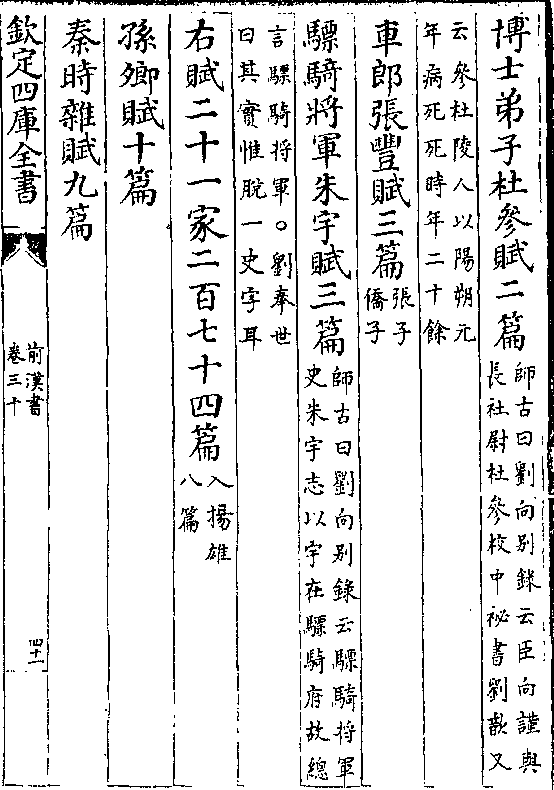 博士弟子杜參賦二篇師古曰劉向别錄云臣向謹與
長社尉杜參校中祕書劉歆又
云參杜陵人以陽朔元
年病死死時年二十餘
車郎張豐賦三篇張子
僑子
驃騎將軍朱宇賦三篇師古曰劉向别錄云驃騎將軍
史朱宇志以宇在驃騎府故總
言驃騎將軍○劉奉世
曰其實惟脫一史字耳
右賦二十一家二百七十四篇入揚雄
八篇
孫卿賦十篇
秦時雜賦九篇
欽定四庫全書
前漢書
卷三十
四十一